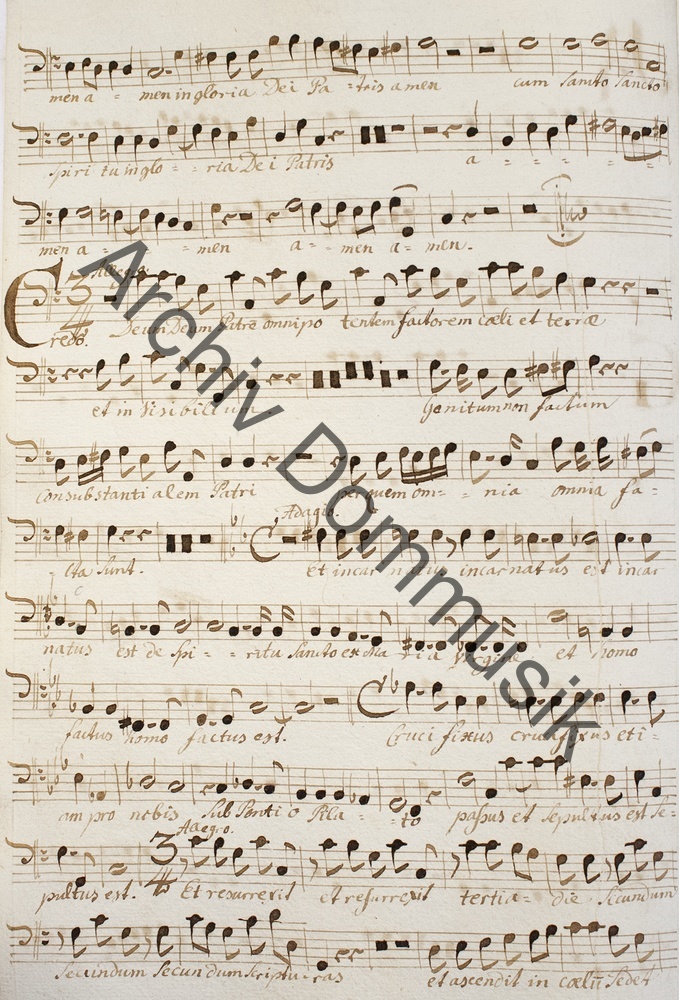 men a - men in gloria Dei Pa - tris amen cum Sancto Sancto
Spiri tu in glo - - ria De i Patris a - - - - -
men a - - - men a - - men a - men.
Allegro.
3/4
Credo. Deum Deum Patre omnipo tentem factorem cæli et terræ
et in Visibilium Genitum non factum
Consubstanti alem Patri per quem om - - nia omnia fa -
Adagio.
- cta sunt. et incar natus incarnatus est incar
natus est de Spi - - ritu Sancto ex Ma ria Virgine et homo
factus homo factus est. Cruci fixus crucifixus eti -
am pro nobis Sub Ponti o Pila - to passus et Sepultus est Se -
Allegro.
3/4
pultus est. Et resurrexit et resurrexit tertia - die Secundum
Secundum Secundum Scriptu - ras et ascendit in cœlũ Sedet
Archiv Dommusik